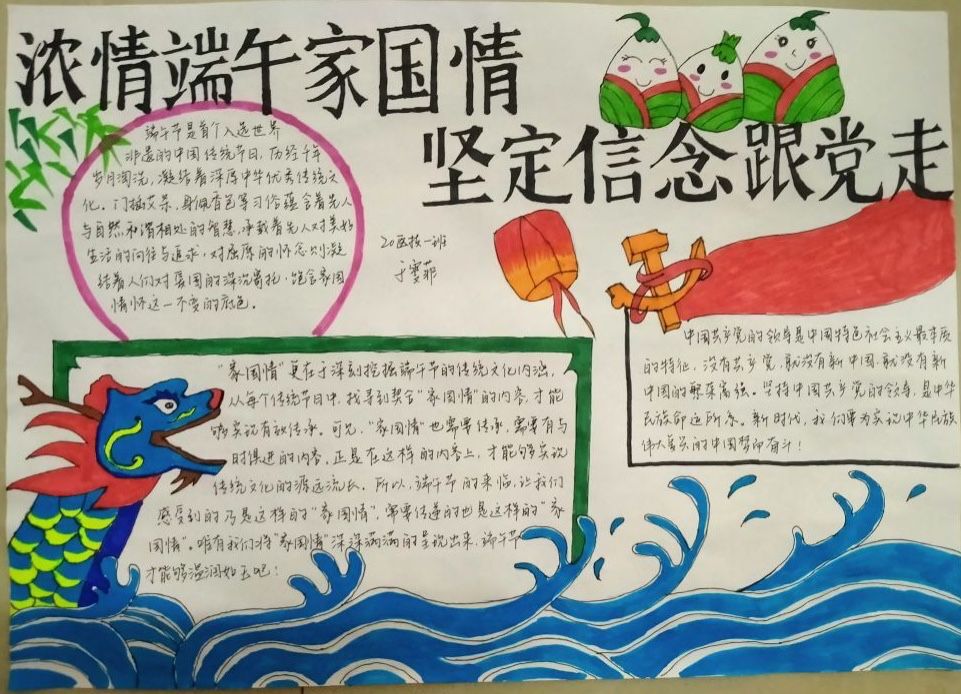 浓情端午家国情
坚定信念跟党走
端午节是首个入选世界
非遗的中国传统节日，历经千年
岁月淘洗，凝结着深厚中华优秀传统文
化。门插艾蒿，身佩香包等习俗蕴含着先人
与自然和谐相处的智慧，承载着先人对美好
生活的向往与追求，对屈原的怀念则凝
结着人们对爱国的深沉寄托，饱含家国
情怀这一不变的底色。
20医技一班
于雯菲
中国共产党的领导是中国特色社会主义最本质
的特征，没有共产党，就没有新中国，就没有新
中国的繁荣富强。坚持中国共产党的领导，是中华
民族命运所系。新时代，我们要为实现中华民族
伟大复兴的中国梦而奋斗！
“家国情”更在于深刻挖掘端午节的传统文化内涵，
从每个传统节日中，找寻到契合“家国情”的内容，才能
够实现有效传承。可见，“家国情”也需要传承，需要有与
时俱进的内容。正是在这样的内容上，才能够实现
传统文化的源远流长。所以，端午节的来临，让我们
感受到的乃是这样的“家国情”，需要传递的也是这样的“家
国情”。唯有我们将“家国情”深深满满的呈现出来，端午节
才能够温润如玉吧！